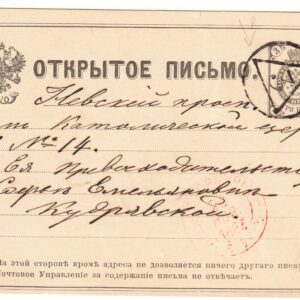 ОТКРЫТОЕ ПИСЬМО.
Невский просп.
Католической цер
№ 14.
Ея Превосходительств
Софьи Емельяновн
Кудрявской.
На этой стороне кроме адреса не дозволяется ничего другаго писат
Почтовое Управление за содержание письма не отвечает.